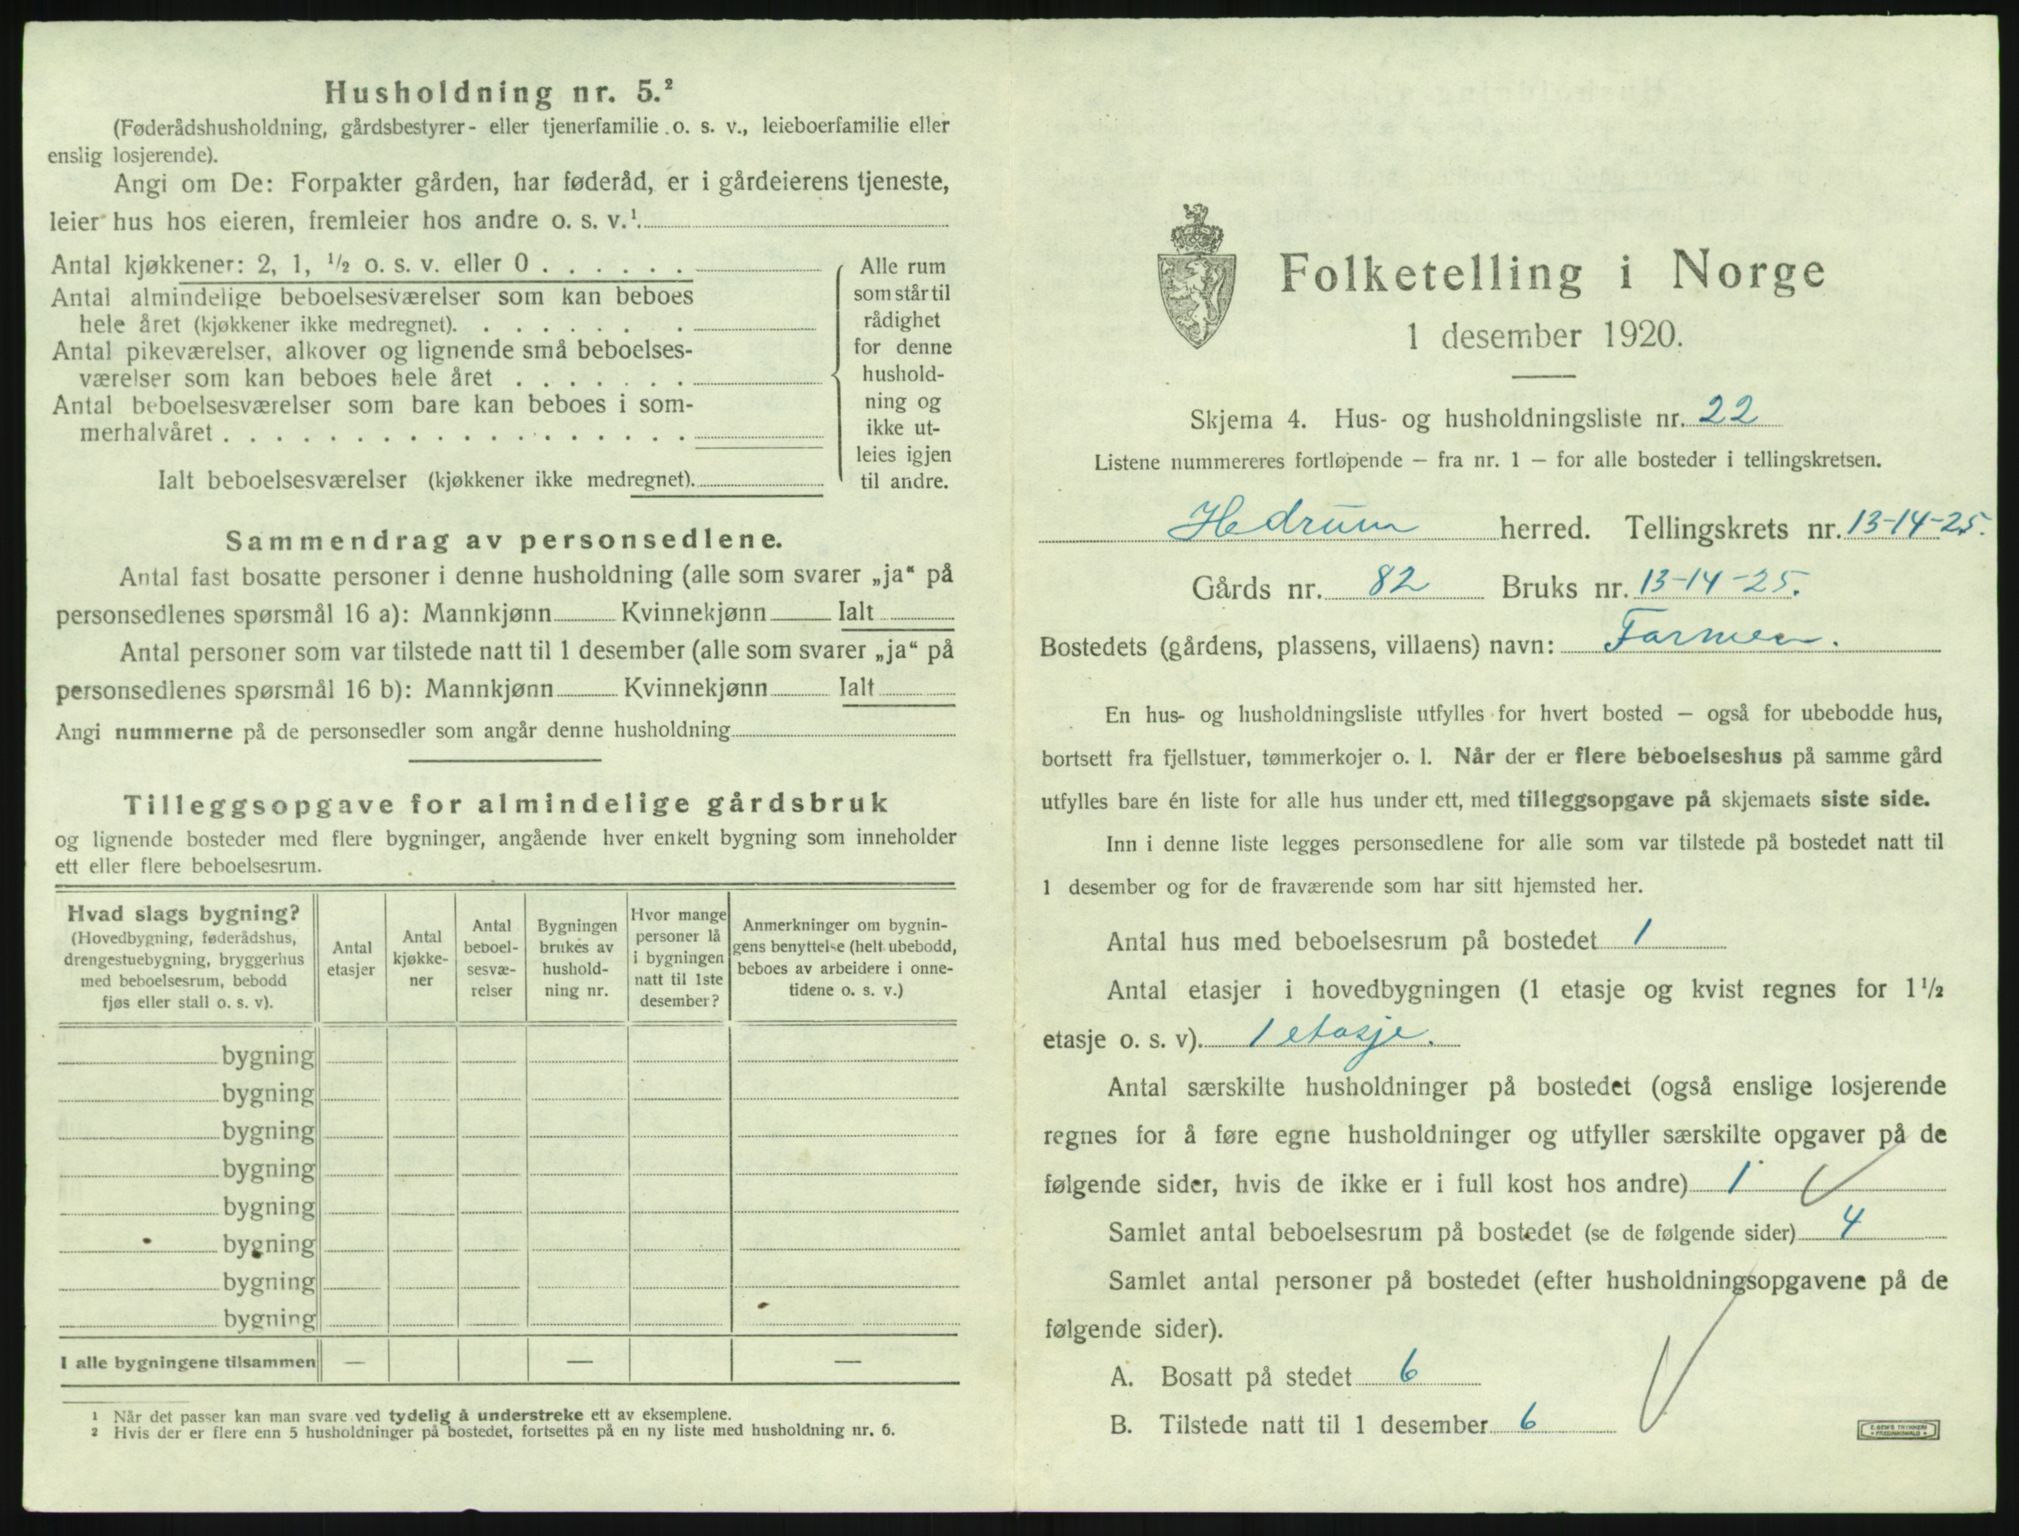 Husholdning nr. 5.²
(Føderådshusholdning, gårdsbestyrer- eller tjenerfamilie o. s. v., leieboerfamilie eller
enslig losjerende).
Angi om De: Forpakter gården, har føderåd, er i gårdeierens tjeneste,
leier hus hos eieren, fremleier hos andre o. s. v.¹
Antal kjøkkener: 2, 1, ½ o. s. v. eller 0 . . . . . .
Antal almindelige beboelsesværelser som kan beboes
hele året (kjøkkener ikke medregnet). . . . . . . .
Antal pikeværelser, alkover og lignende små beboelses-
værelser som kan beboes hele året . . . . . . .
Antal beboelsesværelser som bare kan beboes i som-
merhalvåret . . . . . . . . . . . . . . . . . .
Ialt beboelsesværelser (kjøkkener ikke medregnet).
Alle rum
som står til
rådighet
for denne
hushold-
ning og
ikke ut-
leies igjen
til andre.
Sammendrag av personsedlene.
Antal fast bosatte personer i denne husholdning (alle som svarer „ja“ på
personsedlenes spørsmål 16 a): Mannkjønn Kvinnekjønn Ialt
Antal personer som var tilstede natt til 1 desember (alle som svarer „ja“ på
personsedlenes spørsmål 16 b): Mannkjønn Kvinnekjønn Ialt
Angi nummerne på de personsedler som angår denne husholdning
Tilleggsopgave for almindelige gårdsbruk
og lignende bosteder med flere bygninger, angående hver enkelt bygning som inneholder
ett eller flere beboelsesrum.
Hvad slags bygning?
(Hovedbygning, føderådshus,
drengestuebygning, bryggerhus
med beboelsesrum, bebodd
fjøs eller stall o. s. v).
Antal
etasjer
Antal
kjøkke-
ner
Antal
beboel-
sesvæ-
relser
Bygningen
brukes av
hushold-
ning nr.
Hvor mange
personer lå
i bygningen
natt til 1ste
desember?
Anmerkninger om bygnin-
gens benyttelse (helt ubebodd,
beboes av arbeidere i onne-
tidene o. s. v.)
bygning
bygning
bygning
bygning
bygning
bygning
bygning
bygning
I alle bygningene tilsammen — — —
¹ Når det passer kan man svare ved tydelig å understreke ett av eksemplene.
² Hvis der er flere enn 5 husholdninger på bostedet, fortsettes på en ny liste med husholdning nr. 6.
Folketelling i Norge
1 desember 1920.
Skjema 4. Hus- og husholdningsliste nr. 22
Listene nummereres fortløpende — fra nr. 1 — for alle bosteder i tellingskretsen.
Hedrum herred. Tellingskrets nr. 13-14-25.
Gårds nr. 82 Bruks nr. 13-14-25.
Bostedets (gårdens, plassens, villaens) navn: Farmen.
En hus- og husholdningsliste utfylles for hvert bosted — også for ubebodde hus,
bortsett fra fjellstuer, tømmerkojer o. l. Når der er flere beboelseshus på samme gård
utfylles bare én liste for alle hus under ett, med tilleggsopgave på skjemaets siste side.
Inn i denne liste legges personsedlene for alle som var tilstede på bostedet natt til
1 desember og for de fraværende som har sitt hjemsted her.
Antal hus med beboelsesrum på bostedet 1
Antal etasjer i hovedbygningen (1 etasje og kvist regnes for 1½
etasje o. s. v). 1 etasje.
Antal særskilte husholdninger på bostedet (også enslige losjerende
regnes for å føre egne husholdninger og utfyller særskilte opgaver på de
følgende sider, hvis de ikke er i full kost hos andre) 1
Samlet antal beboelsesrum på bostedet (se de følgende sider) 4
Samlet antal personer på bostedet (efter husholdningsopgavene på de
følgende sider).
A. Bosatt på stedet 6
B. Tilstede natt til 1 desember 6